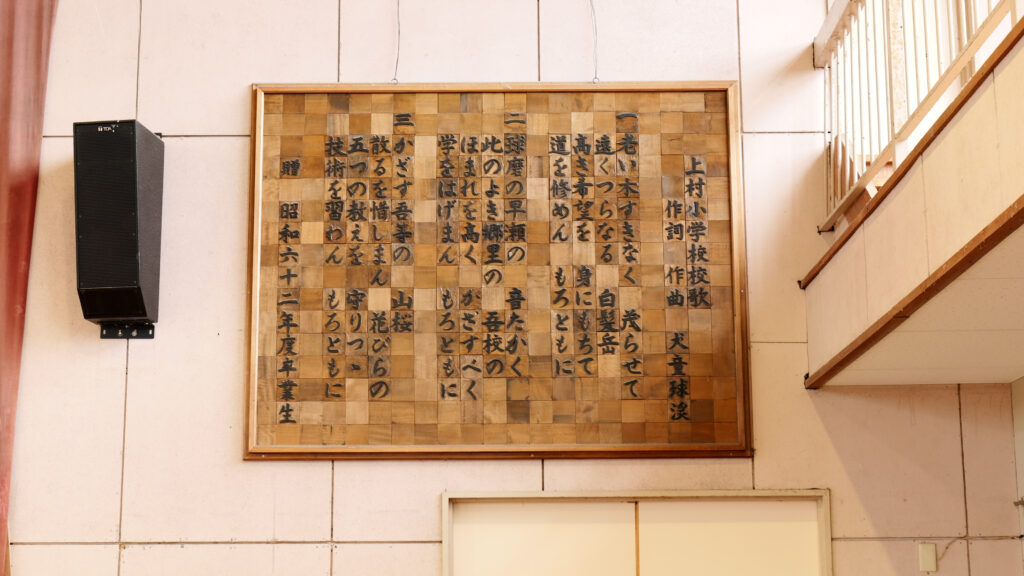 上村小学校校歌
作詞 作曲 犬童球渓
一 老い木すきなく 茂らせて
遠くつらなる 白髪岳
高き希望を 身にもちて
道を修めん もろともに
二 球磨の早瀬の 音たかく
此のよき郷里の 吾校の
ほまれを高く かざすべく
学をはげまん もろともに
三 かざす吾等の 山桜
散るを惜しまん 花びらの
五つの教えを 守りつゝ
技術を習わん もろともに
贈 昭和六十二年度卒業生
TOA